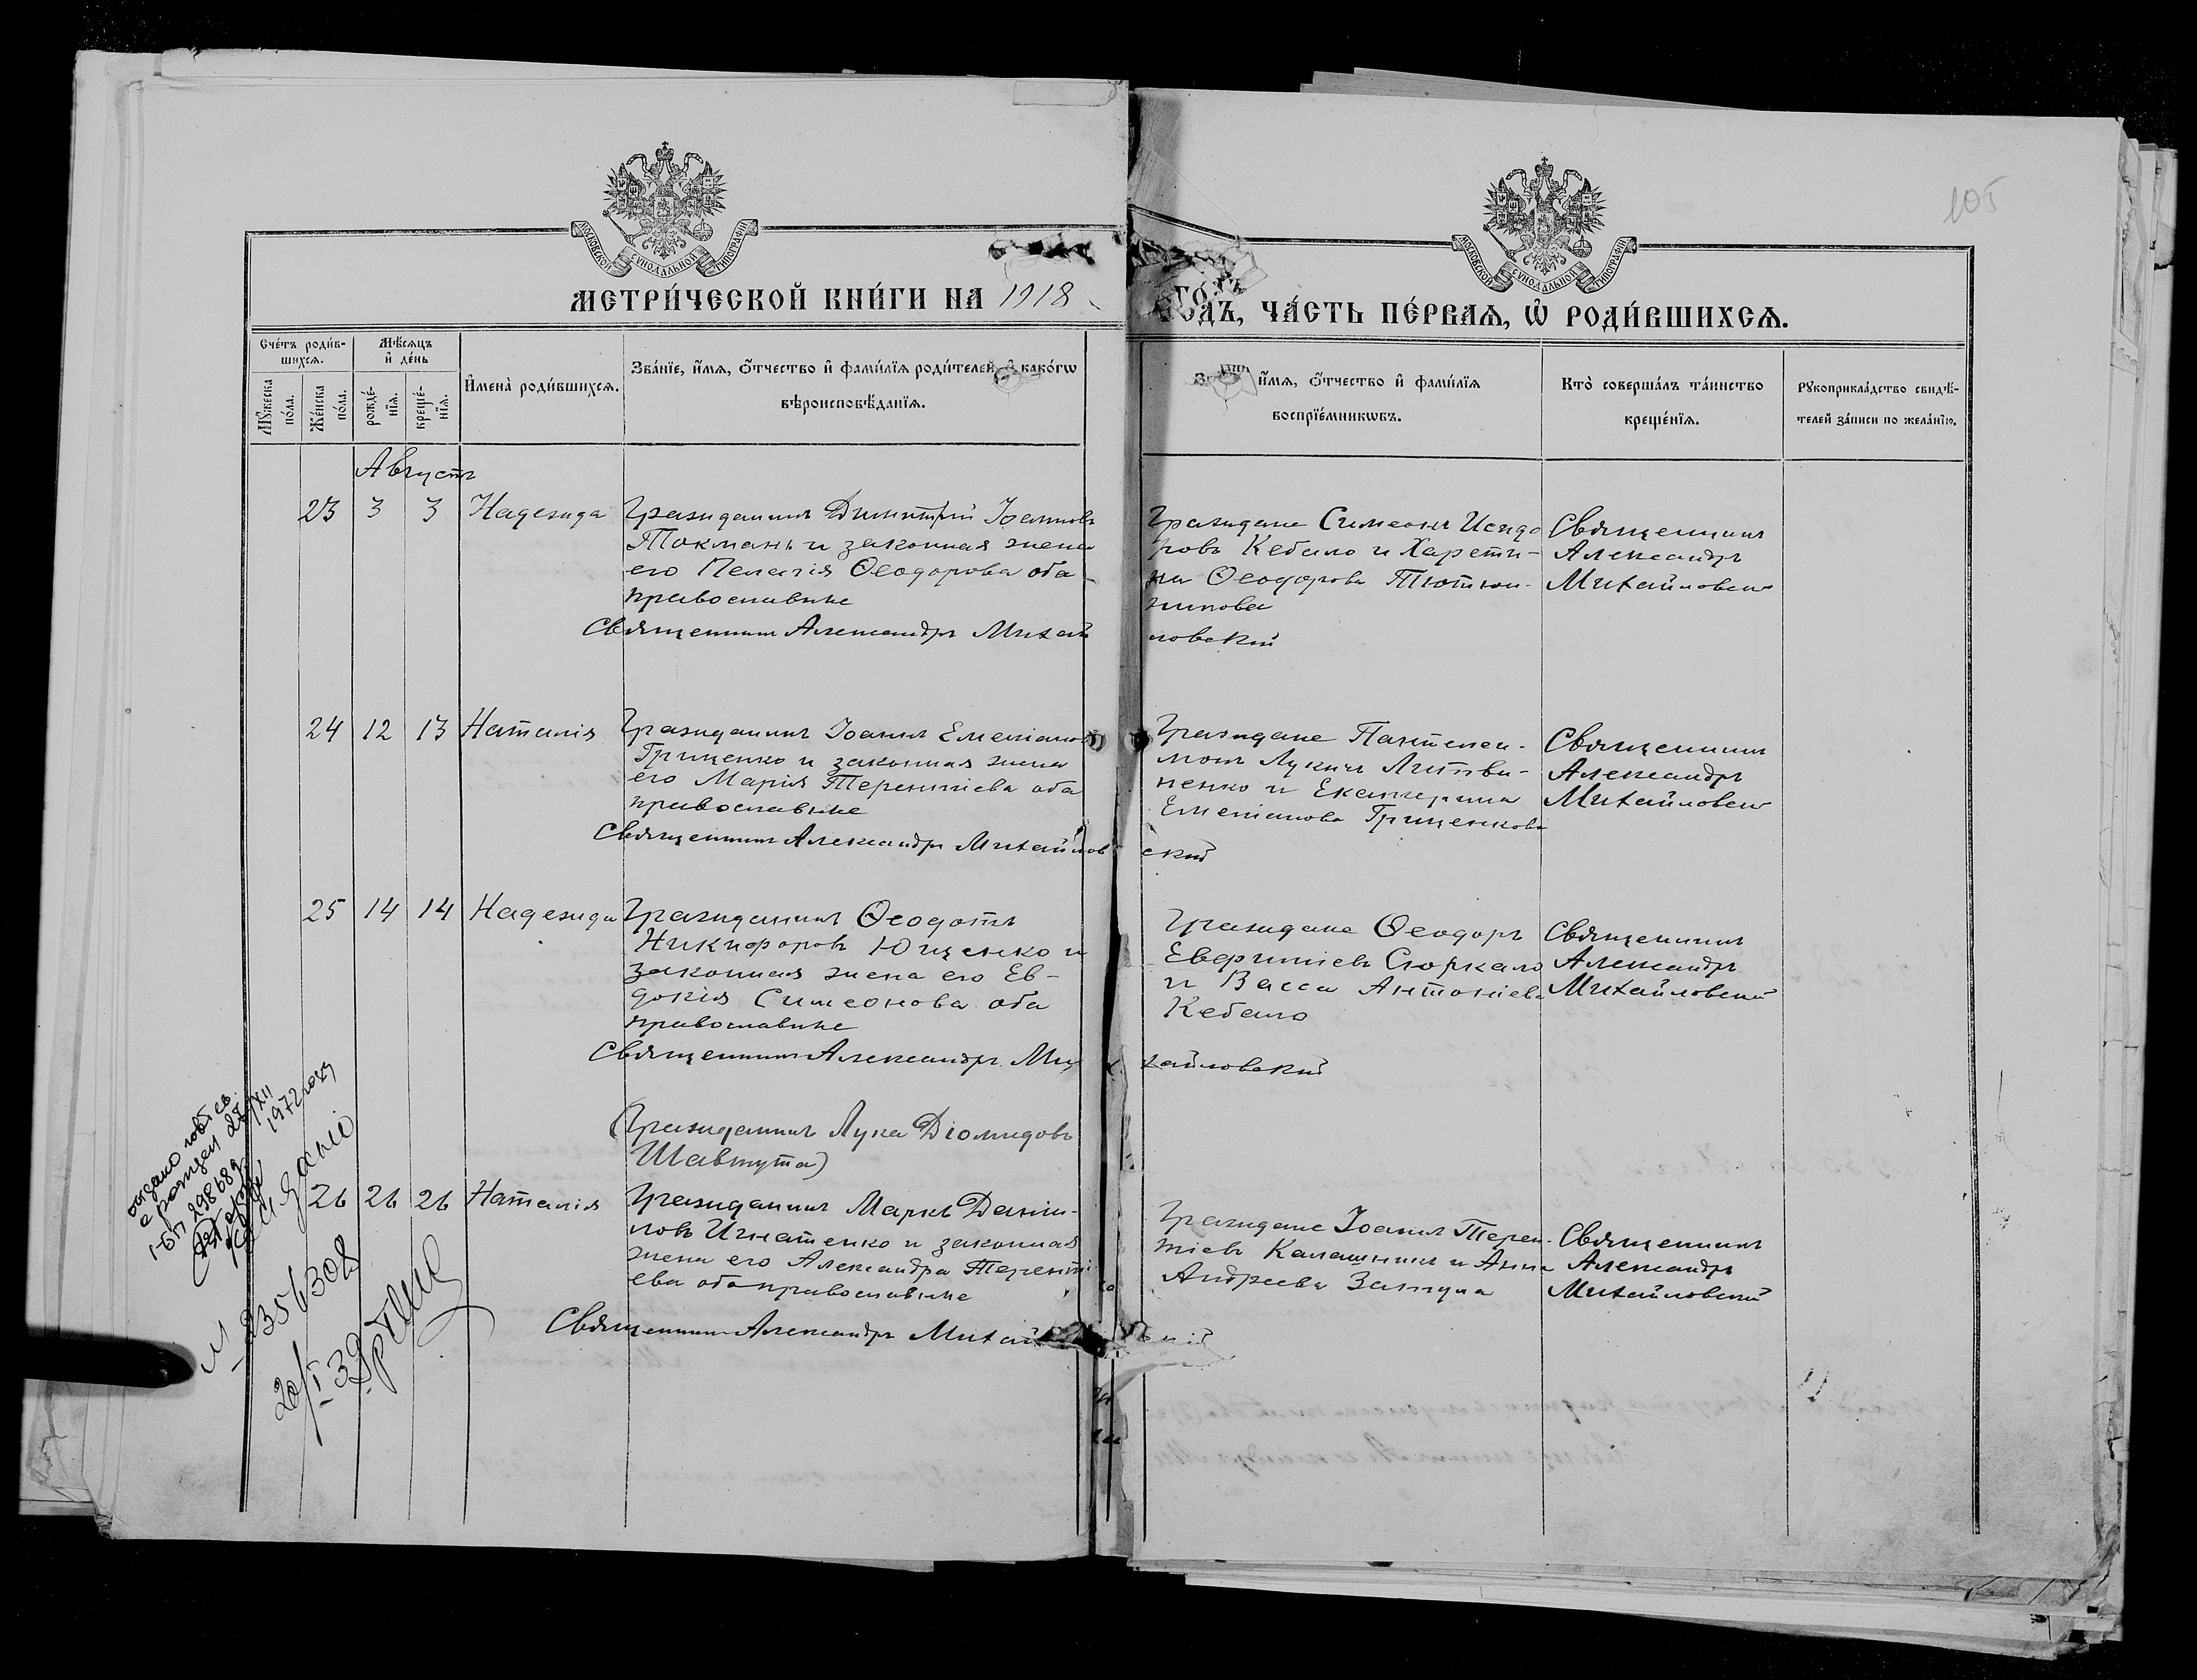 105
МОСКОВСКОЙ СѴНОДАЛЬНОЙ ТИПОГРАФІИ
МОСКОВСКОЙ СѴНОДАЛЬНОЙ ТИПОГРАФІИ
МЕТРИ́ЧЕСКОЙ КНИ́ГИ НА 1918
ГО́ДЪ, ЧА́СТЬ ПЕ́РВАѦ, Ѡ҆ РОДИ́ВШИХСѦ.
Сче́тъ роди́в-
шихсѧ.
Мꙋ́жеска по́ла.
Же́нска по́ла.
Мѣ́сѧцъ
и҆ де́нь
рожде́-
нїѧ.
креще́-
нїѧ.
И҆мена̀ роди́вшихсѧ.
Зва́нїе, и҆́мѧ, ѻ҆́тчество и҆ фами́лїѧ роди́телей, и҆ како́гѡ
вѣроисповѣ́данїѧ.
и҆́мѧ, ѻ҆́тчество и҆ фами́лїѧ
воспрїе́мникѡвъ.
Кто̀ соверша́лъ та́инство
креще́нїѧ.
Рꙋкоприкла́дство свидѣ́-
телей за́писи по жела́нїю.
Августъ
23 3 3 Надежда
Гражданинъ Димитрій Іоанновъ
Токмань и законная жена
его Пелагія Ѳеодорова оба
православные
Священникъ Александръ Михай
ловскій
Граждане Симеонъ Исидо
ровъ Кебало и Харети-
на Ѳеодорова Тютюн-
никова
Священникъ
Александръ
Михайловскій
24 12 13 Наталія
Гражданинъ Іоаннъ Емеліановъ
Гриценко и законная жена
его Марія Терентіева оба
православные
Священникъ Александръ Михайлов
скій
Граждане Пантелеи-
монъ Лукинъ Литви-
ненко и Екатерина
Емеліанова Гриценкова
Священникъ
Александръ
Михайловскій
25 14 14 Надежда
Гражданинъ Ѳеодотъ
Никифоровъ Ющенко и
законная жена его Ев-
докія Симеонова оба
православные
Священникъ Александръ Ми
хайловскій
Граждане Ѳеодоръ
Евфиміевъ Сюркало
и Васса Антоніева
Кебало
Священникъ
Александръ
Михайловскій
(Гражданинъ Лука Діомидовъ
Шавкута)
26 26 26 Наталія
Гражданинъ Маркъ Дании-
ловъ Игнатенко и законная
жена его Александра Теренті
ева оба православные
Священникъ Александръ Михай
Граждане Іоаннъ Терен-
тіевъ Калашникъ и Анна
Андреева
Священникъ
Александръ
Михайловскій
1972 року
20/I 39